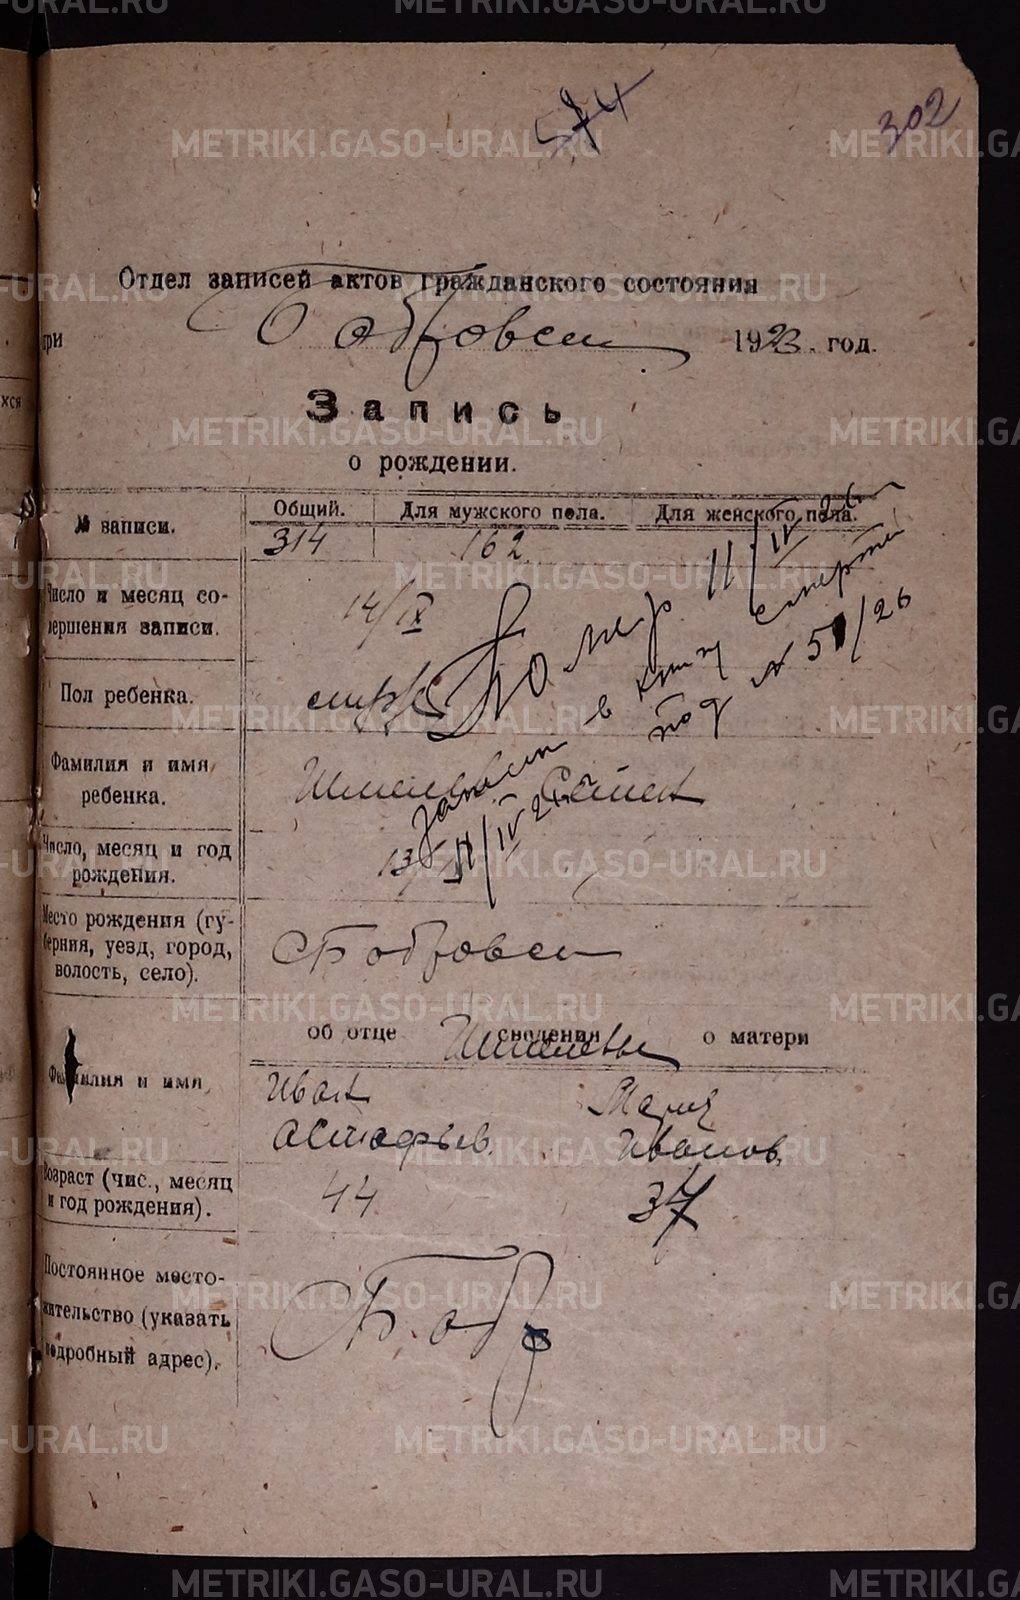 METRIKI.GASO-URAL.RU
574
302
Отдел записей актов гражданского состояния
при Бобровск 1923. год.
Запись
о рождении.
№ записи.
Общий. Для мужского пола. Для женского пола.
314 162
Число и месяц со-
вершения записи.
14/IX
Пол ребенка.
Помер 11/IV 26
запись в книгу смерти
под № 51/26
11/IV 26
Фамилия и имя
ребенка.
Шмелев
Число, месяц и год
рождения.
13
Место рождения (гу-
берния, уезд, город,
волость, село).
С Бобровск
об отце сведения о матери
Шмелевы
Фамилия и имя
Иван Мария
Астафьев. Иванов.
Возраст (чис., месяц
и год рождения).
44 37
Постоянное место-
жительство (указать
подробный адрес).
С Бобр
METRIKI.GASO-URAL.RU